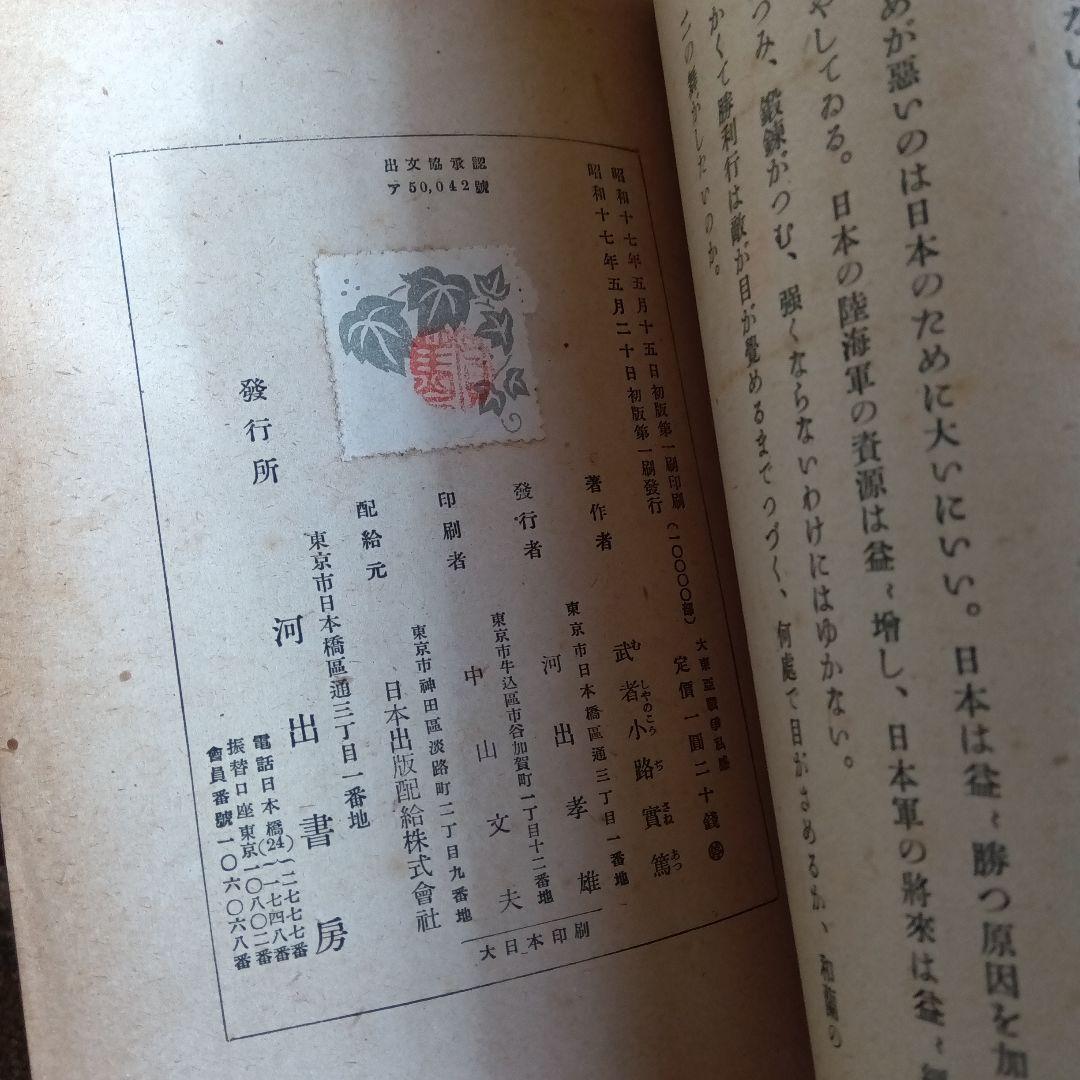 めが惡いのは日本のために大いにいい。日本は益〻勝つ原因を加
やしてゐる。日本の陸海軍の資源は益〻增し、日本軍の將來は益〻
つみ、鍛鍊がつむ、强くならないわけにはゆかない。
かくて勝利行は敵が目が覺めるまでつづく、何處で目がさめるか、和蘭の
出文協承認
ア50,042號
昭和十七年五月十五日初版第一刷印刷(一〇〇〇〇部)
昭和十七年五月二十日初版第一刷發行
大東亞戰爭私感
定價一圓二十錢
著作者
武者小路實篤
むしやのこうちさねあつ
發行者
東京市日本橋區通三丁目一番地
河出孝雄
印刷者
東京市牛込區市谷加賀町一丁目十二番地
中山文夫
配給元
東京市神田區淡路町二丁目九番地
日本出版配給株式會社
發行所
東京市日本橋區通三丁目一番地
河出書房
電話日本橋(24)一二七七七番
一七四八番
振替口座東京一〇八〇二番
會員番號一〇六〇六八番
大日本印刷